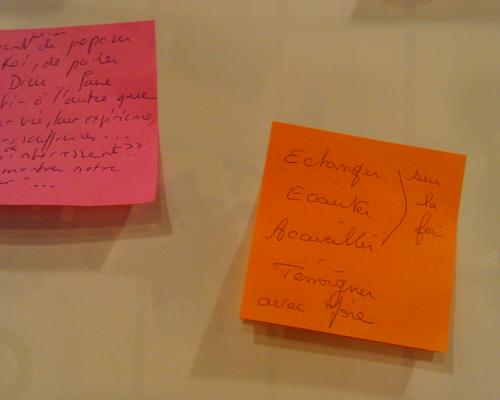 de poposer
Foi, de parler
Dieu ... Faire
à l'autre que
vie, leur expérience,
souffrances ...
intéressent ??
montrer notre
" ...
Echanger
Ecouter
Accueillir
sur
la
foi
Témoigner
avec joie